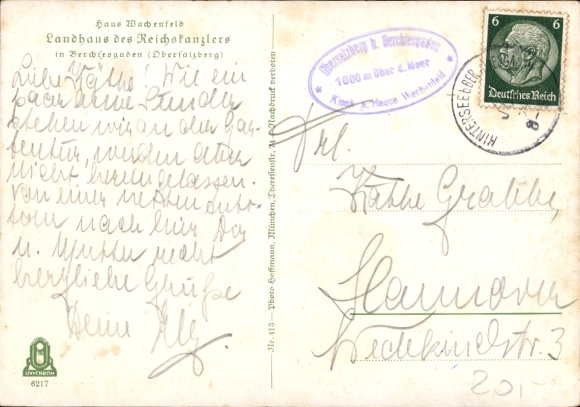 Haus Wachenfeld
Landhaus des Reichskanzlers
in Berchtesgaden (Obersalzberg)
Liebe Käthe! Wie ein
paar arme Sünder
stehen wir an der Gar-
tentür, werden aber
nicht hereingelassen.
Von einer netten
nach hier Dir
u. Mutter recht
herzliche Grüße
Deine
UVACHROM
6217
Nr. 413 — Photo Hoffmann, München, Theresienstr. 74 — Nachdruck verboten
Obersalzberg b. Berchtesgaden
1000 m über d. Meer
Haus Wachenfeld
HINTERSEE
6 6
Deutsches Reich
Frl.
Käthe Grabbe,
Hannover
Wedekindstr. 3
20,-